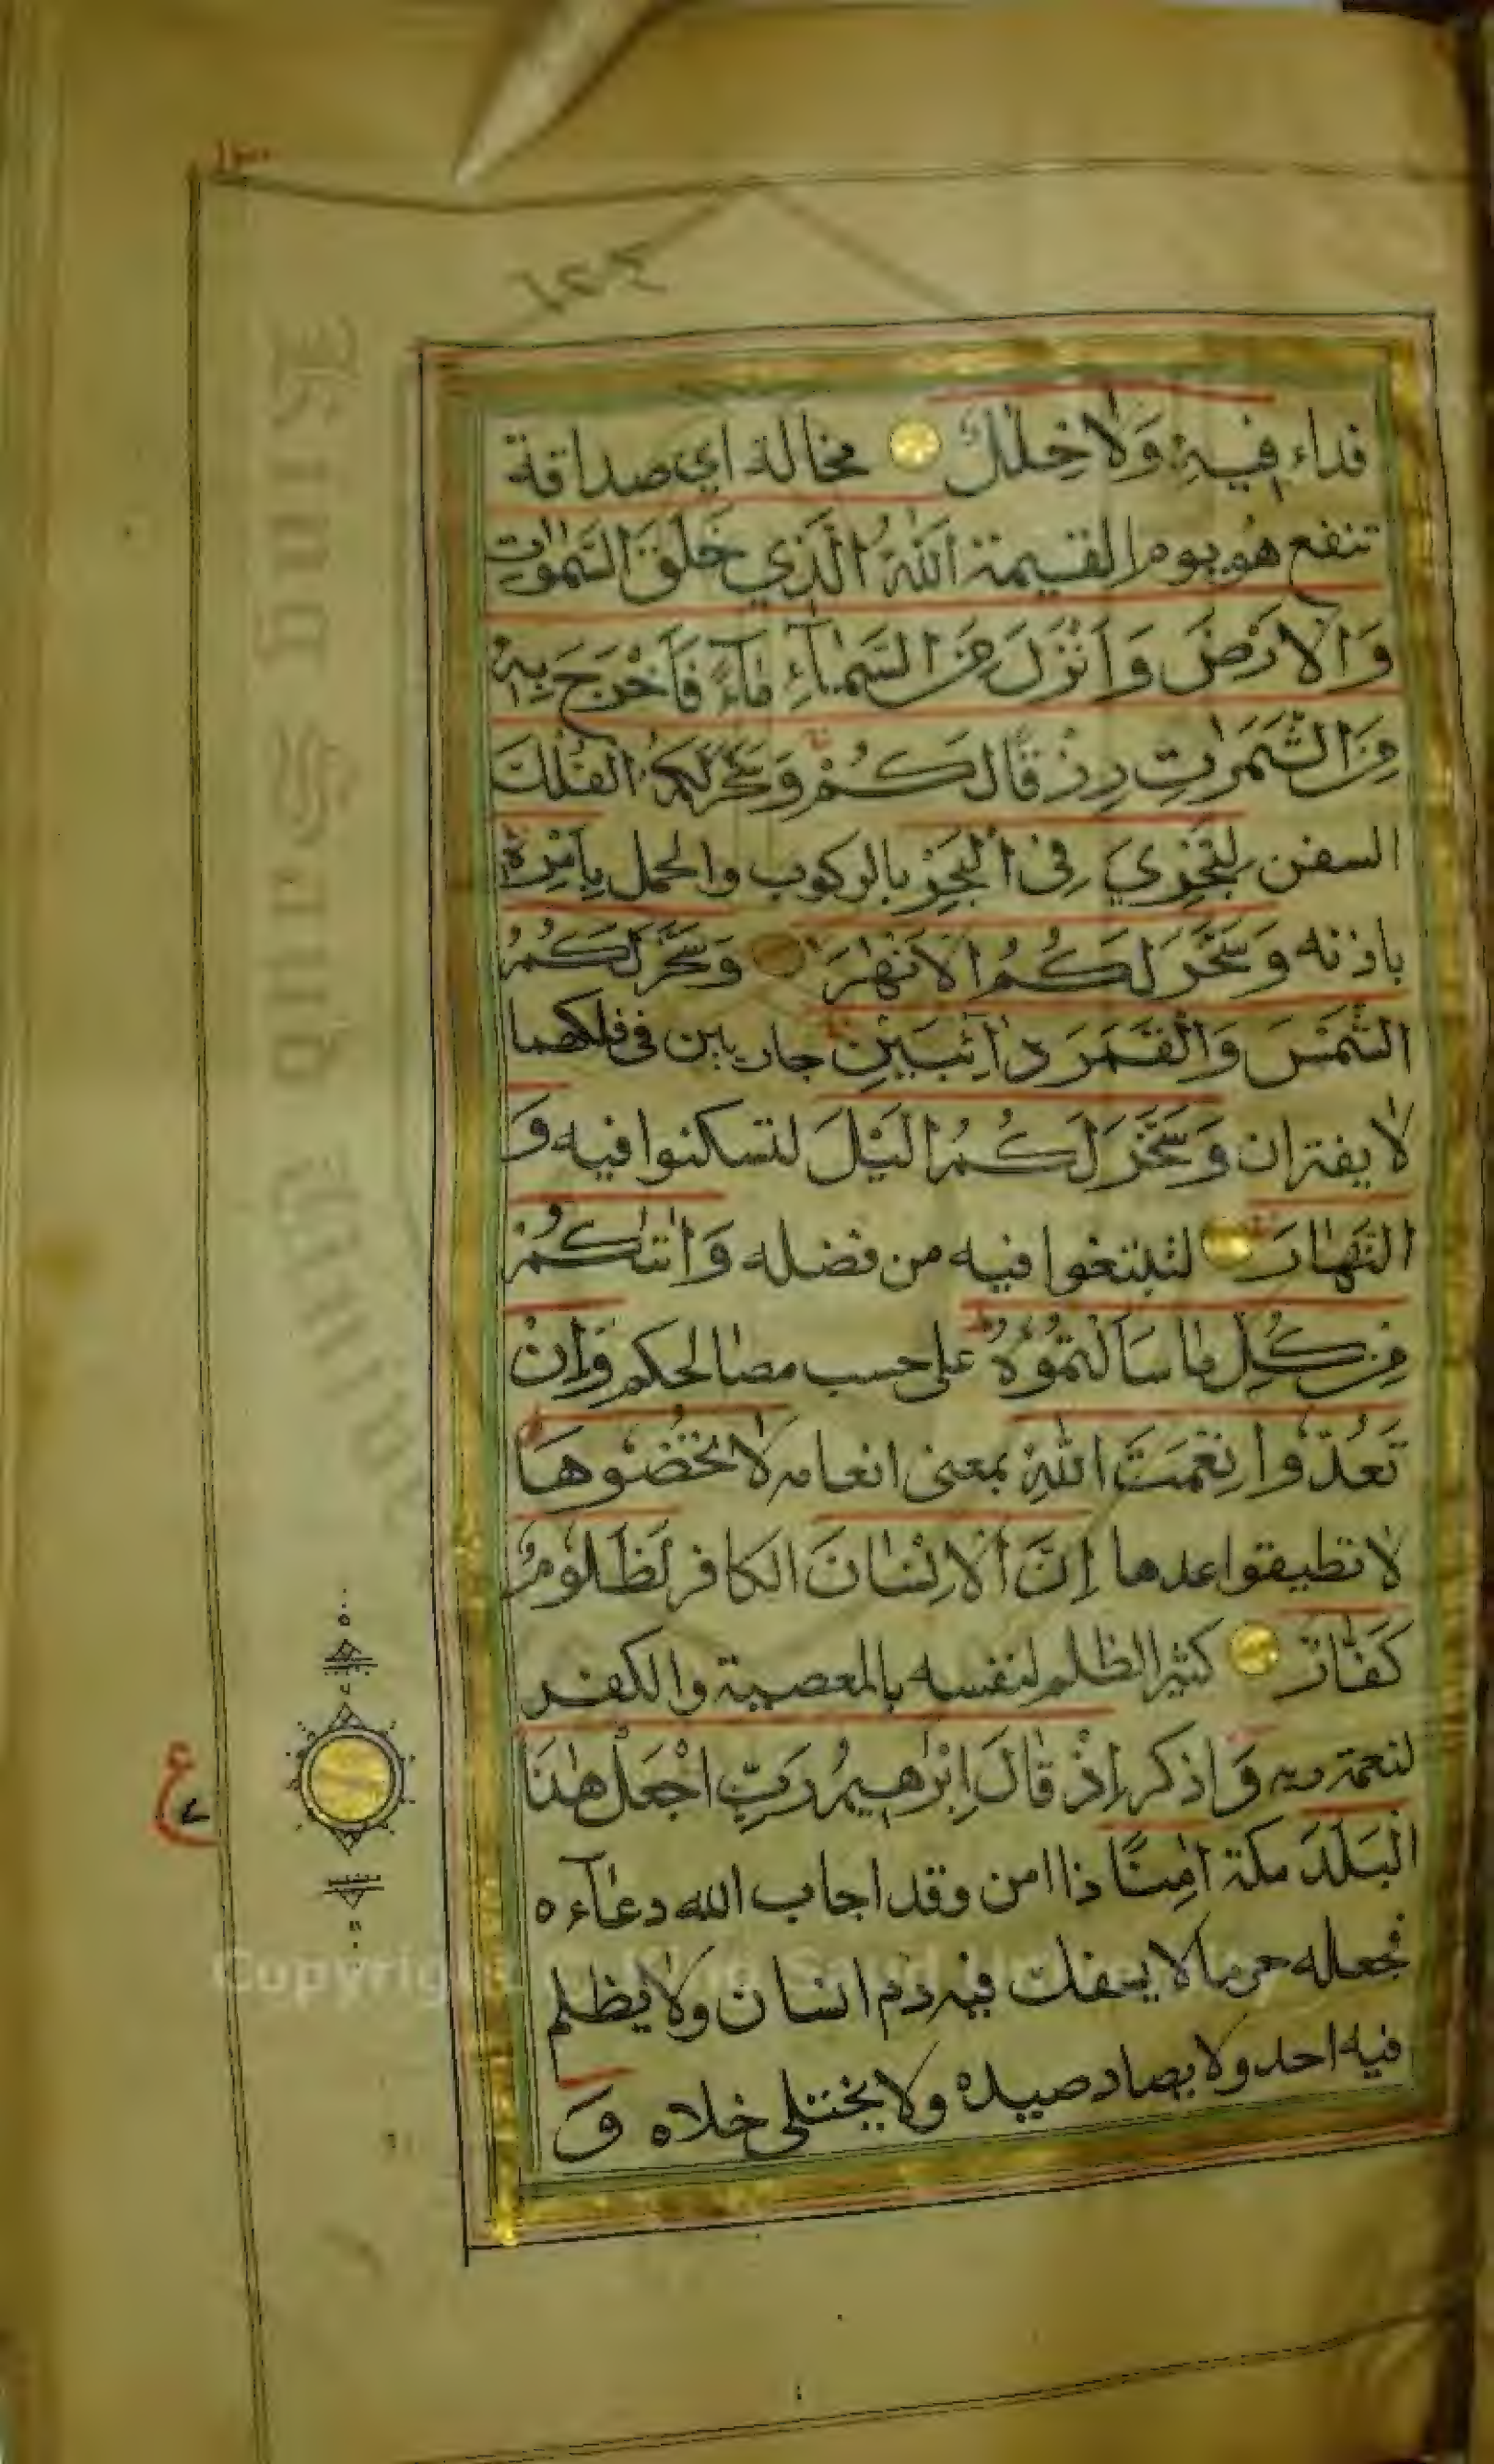 فداء فِيهِ وَلَا خِلٰلٌ مخالة اي صداقة
تنفع هو يوم القيمة اَللّٰهُ الَّذِي خَلَقَ السَّمٰوٰتِ
وَالْاَرْضَ وَاَنْزَلَ مِنَ السَّمَآءِ مَآءً فَاَخْرَجَ بِهٖ
مِنَ الثَّمَرٰتِ رِزْقًا لَكُمْ وَسَخَّرَ لَكُمُ الْفُلْكَ
السفن لِتَجْرِيَ فِى الْبَحْرِ بالركوب والحمل بِاَمْرِهٖ
باذنه وَسَخَّرَ لَكُمُ الْاَنْهٰرَ وَسَخَّرَ لَكُمُ
الشَّمْسَ وَالْقَمَرَ دَآئِبَيْنِ جاريين فى فلكهما
لا يفتران وَسَخَّرَ لَكُمُ الَّيْلَ لتسكنوا فيه وَ
النَّهَارَ لتبتغوا فيه من فضله وَاٰتٰكُمْ
مِنْ كُلِّ مَا سَاَلْتُمُوْهُ على حسب مصالحكم وَاِنْ
تَعُدُّوا نِعْمَتَ اللّٰهِ بمعنى انعامه لَا تُحْصُوهَا
لا تطيقوا عدها اِنَّ الْاِنْسَانَ الكافر لَظَلُومٌ
كَفَّارٌ كثير الظلم لنفسه بالمعصية والكفر
لنعمة ربه وَ اذكر اِذْ قَالَ اِبْرٰهِيمُ رَبِّ اجْعَلْ هٰذَا
الْبَلَدَ مكة اٰمِنًا ذا امن وقد اجاب الله دعآءه
فجعله حرما لا يسفك فيه دم انسان ولا يظلم
فيه احد ولا يصاد صيده ولا يختلى خلاه وَ
ع
٧
King Saud University
Copyright © King Saud University